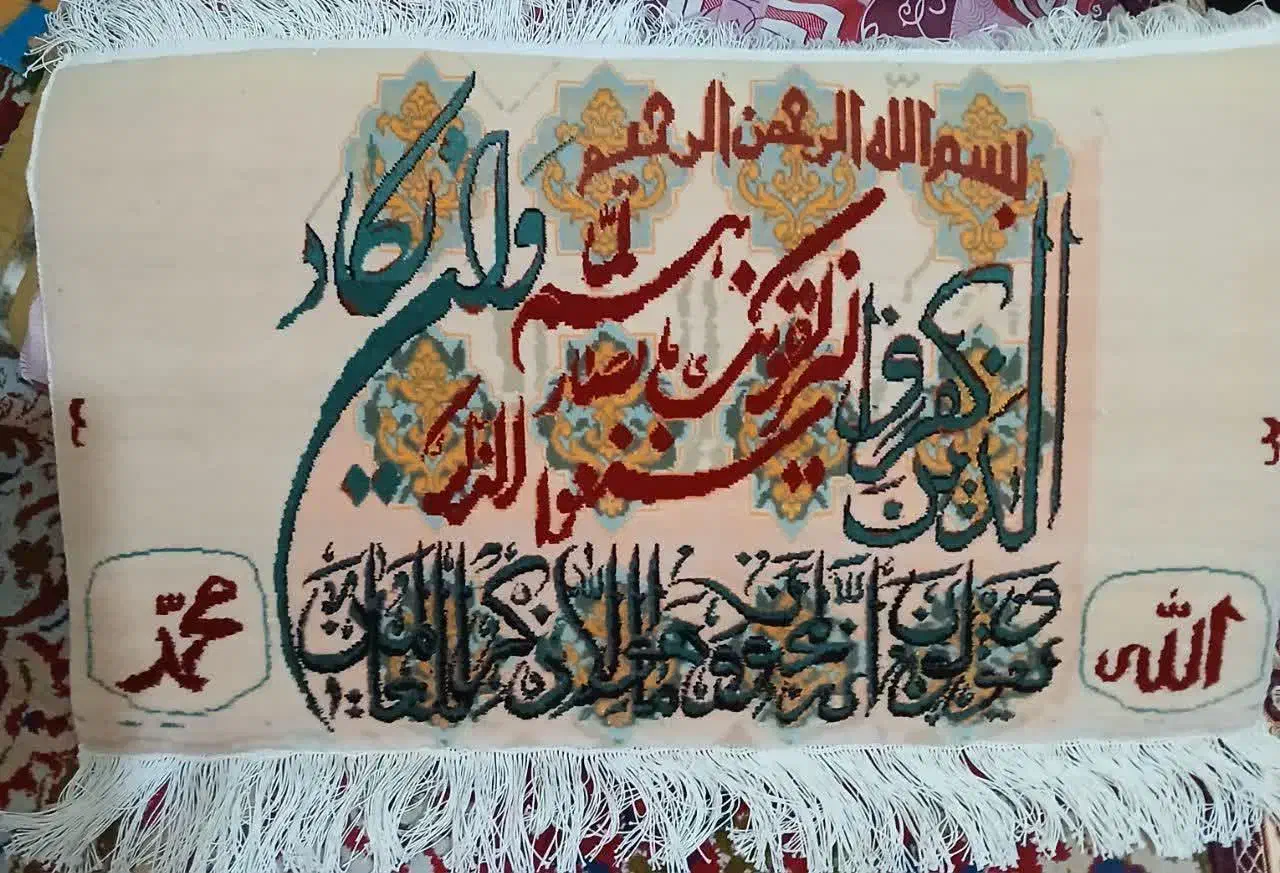 بسم الله الرحمن الرحيم
وان يكاد
الذين كفروا
ليزلقونك بابصارهم لمّا
سمعوا الذكر
ويقولون انه لمجنون وما هو الا ذكر للعالمين
الله
محمّد